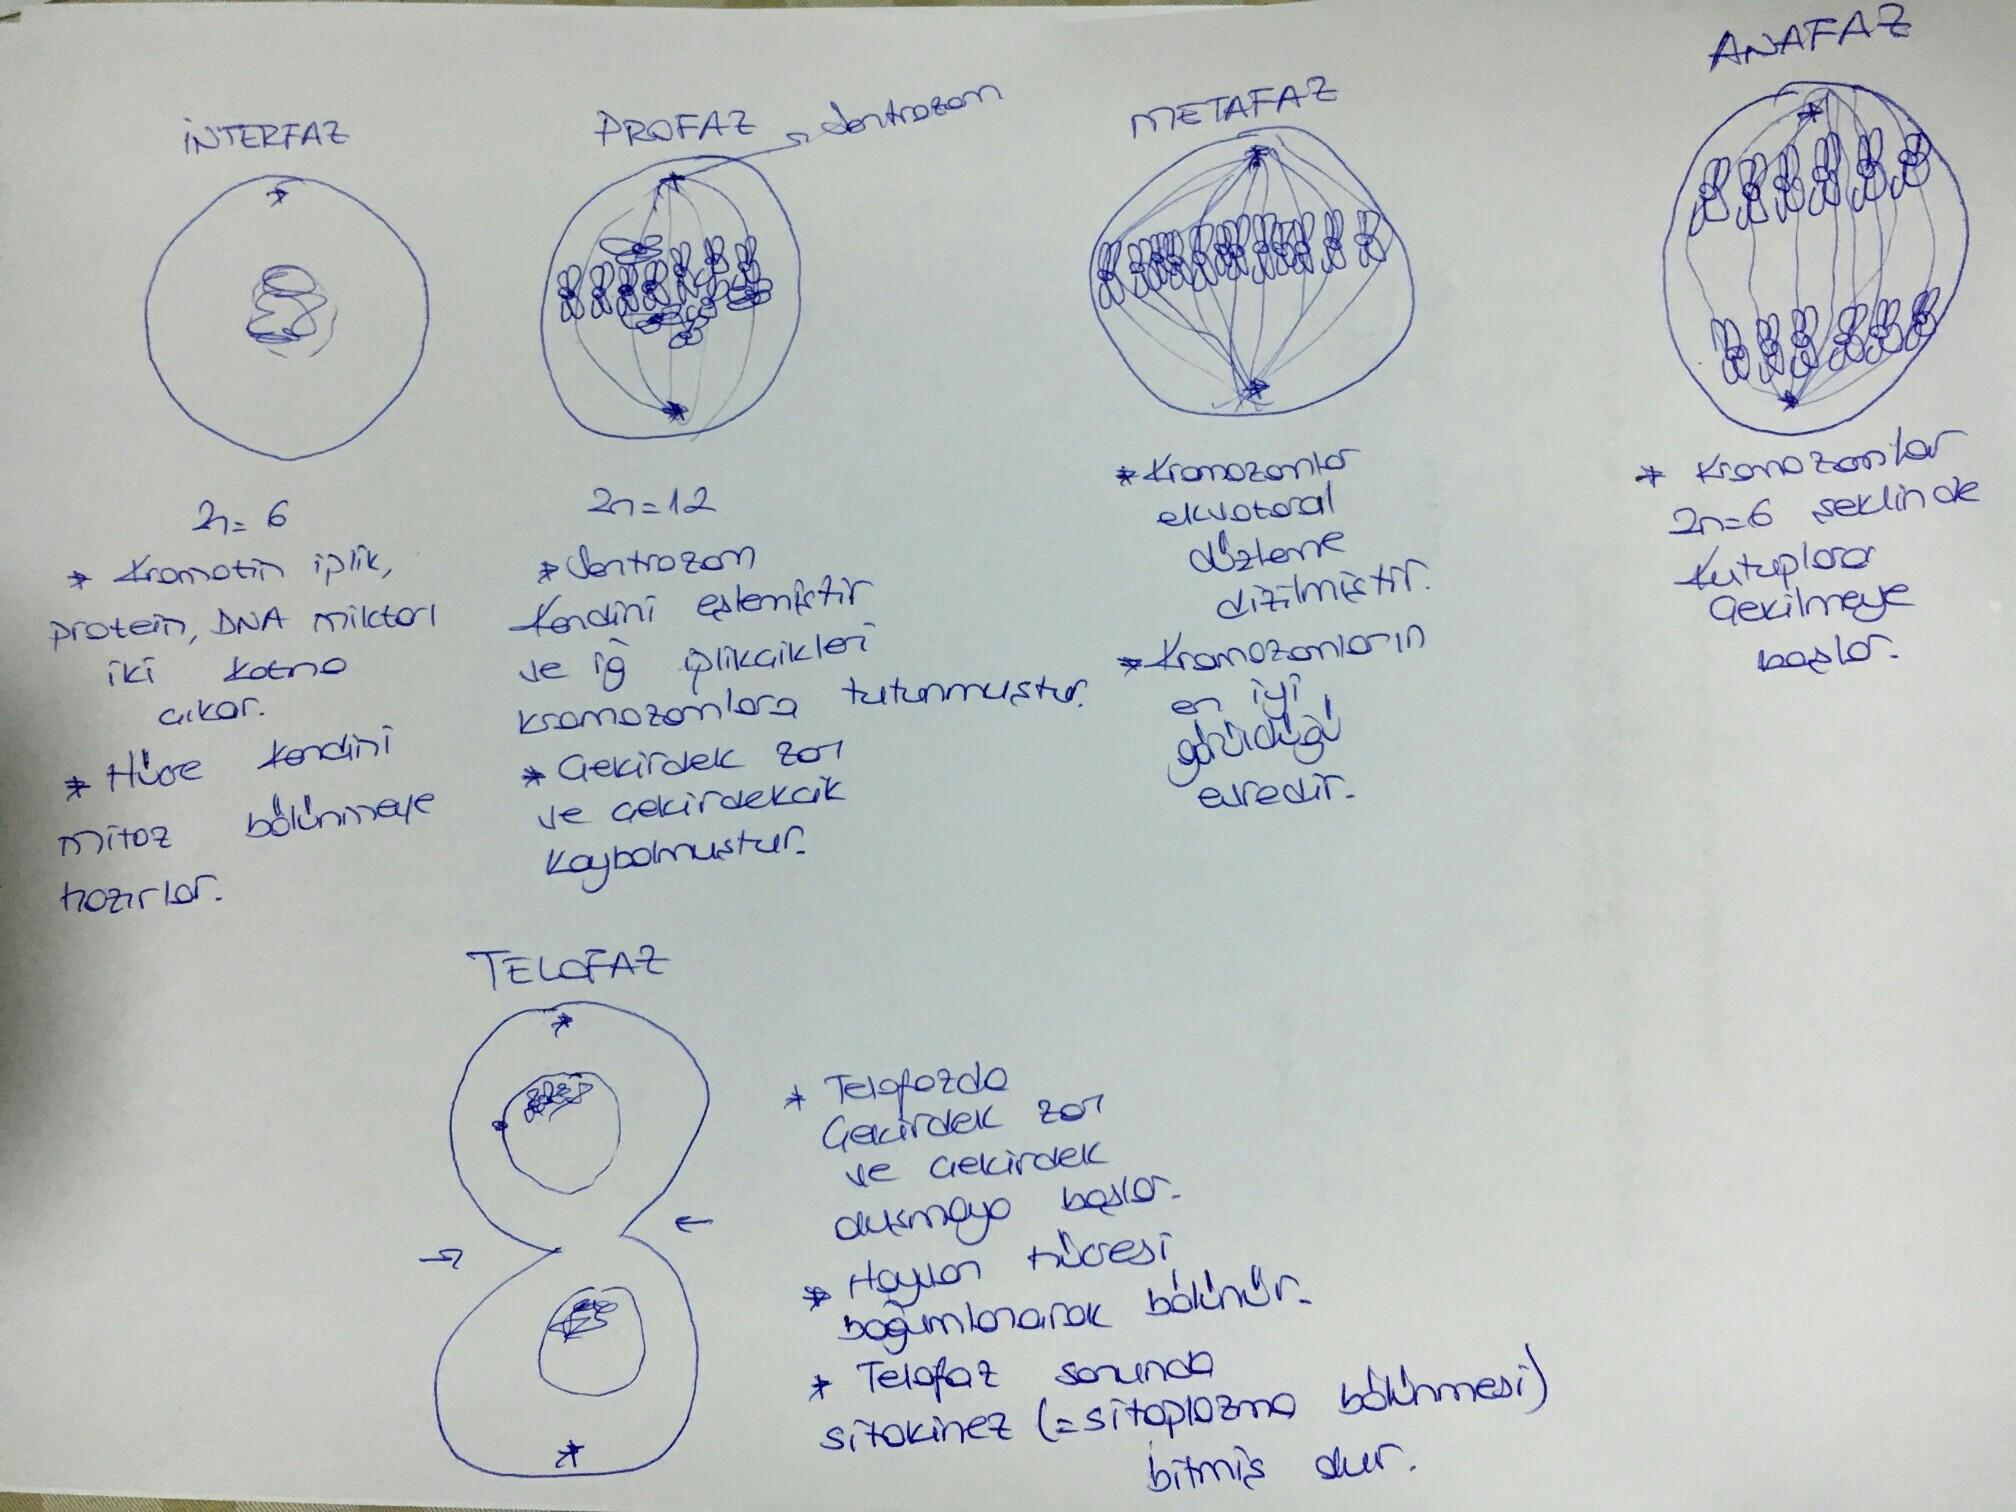 İNTERFAZ
2n=6
* Kromatin iplik,
protein, DNA miktarı
iki katına
çıkar.
* Hücre kendini
mitoz bölünmeye
hazırlar.
PROFAZ
Sentrozom
2n=12
* Sentrozom
kendini eşlemiştir
ve iğ iplikcikleri
kromozomlara tutunmuştur.
* Çekirdek zarı
ve çekirdekcik
kaybolmuştur.
METAFAZ
* Kromozomlar
ekvatoral
düzleme
dizilmiştir.
* Kromozomların
en iyi
görüldüğü
evredir.
ANAFAZ
* Kromozomlar
2n=6 şeklinde
kutuplara
çekilmeye
başlar.
TELOFAZ
* Telofazda
Çekirdek zarı
ve çekirdek
oluşmaya başlar.
* Hayvan hücresi
boğumlanarak bölünür.
* Telofaz sonunda
sitokinez (=sitoplazma bölünmesi)
bitmiş olur.